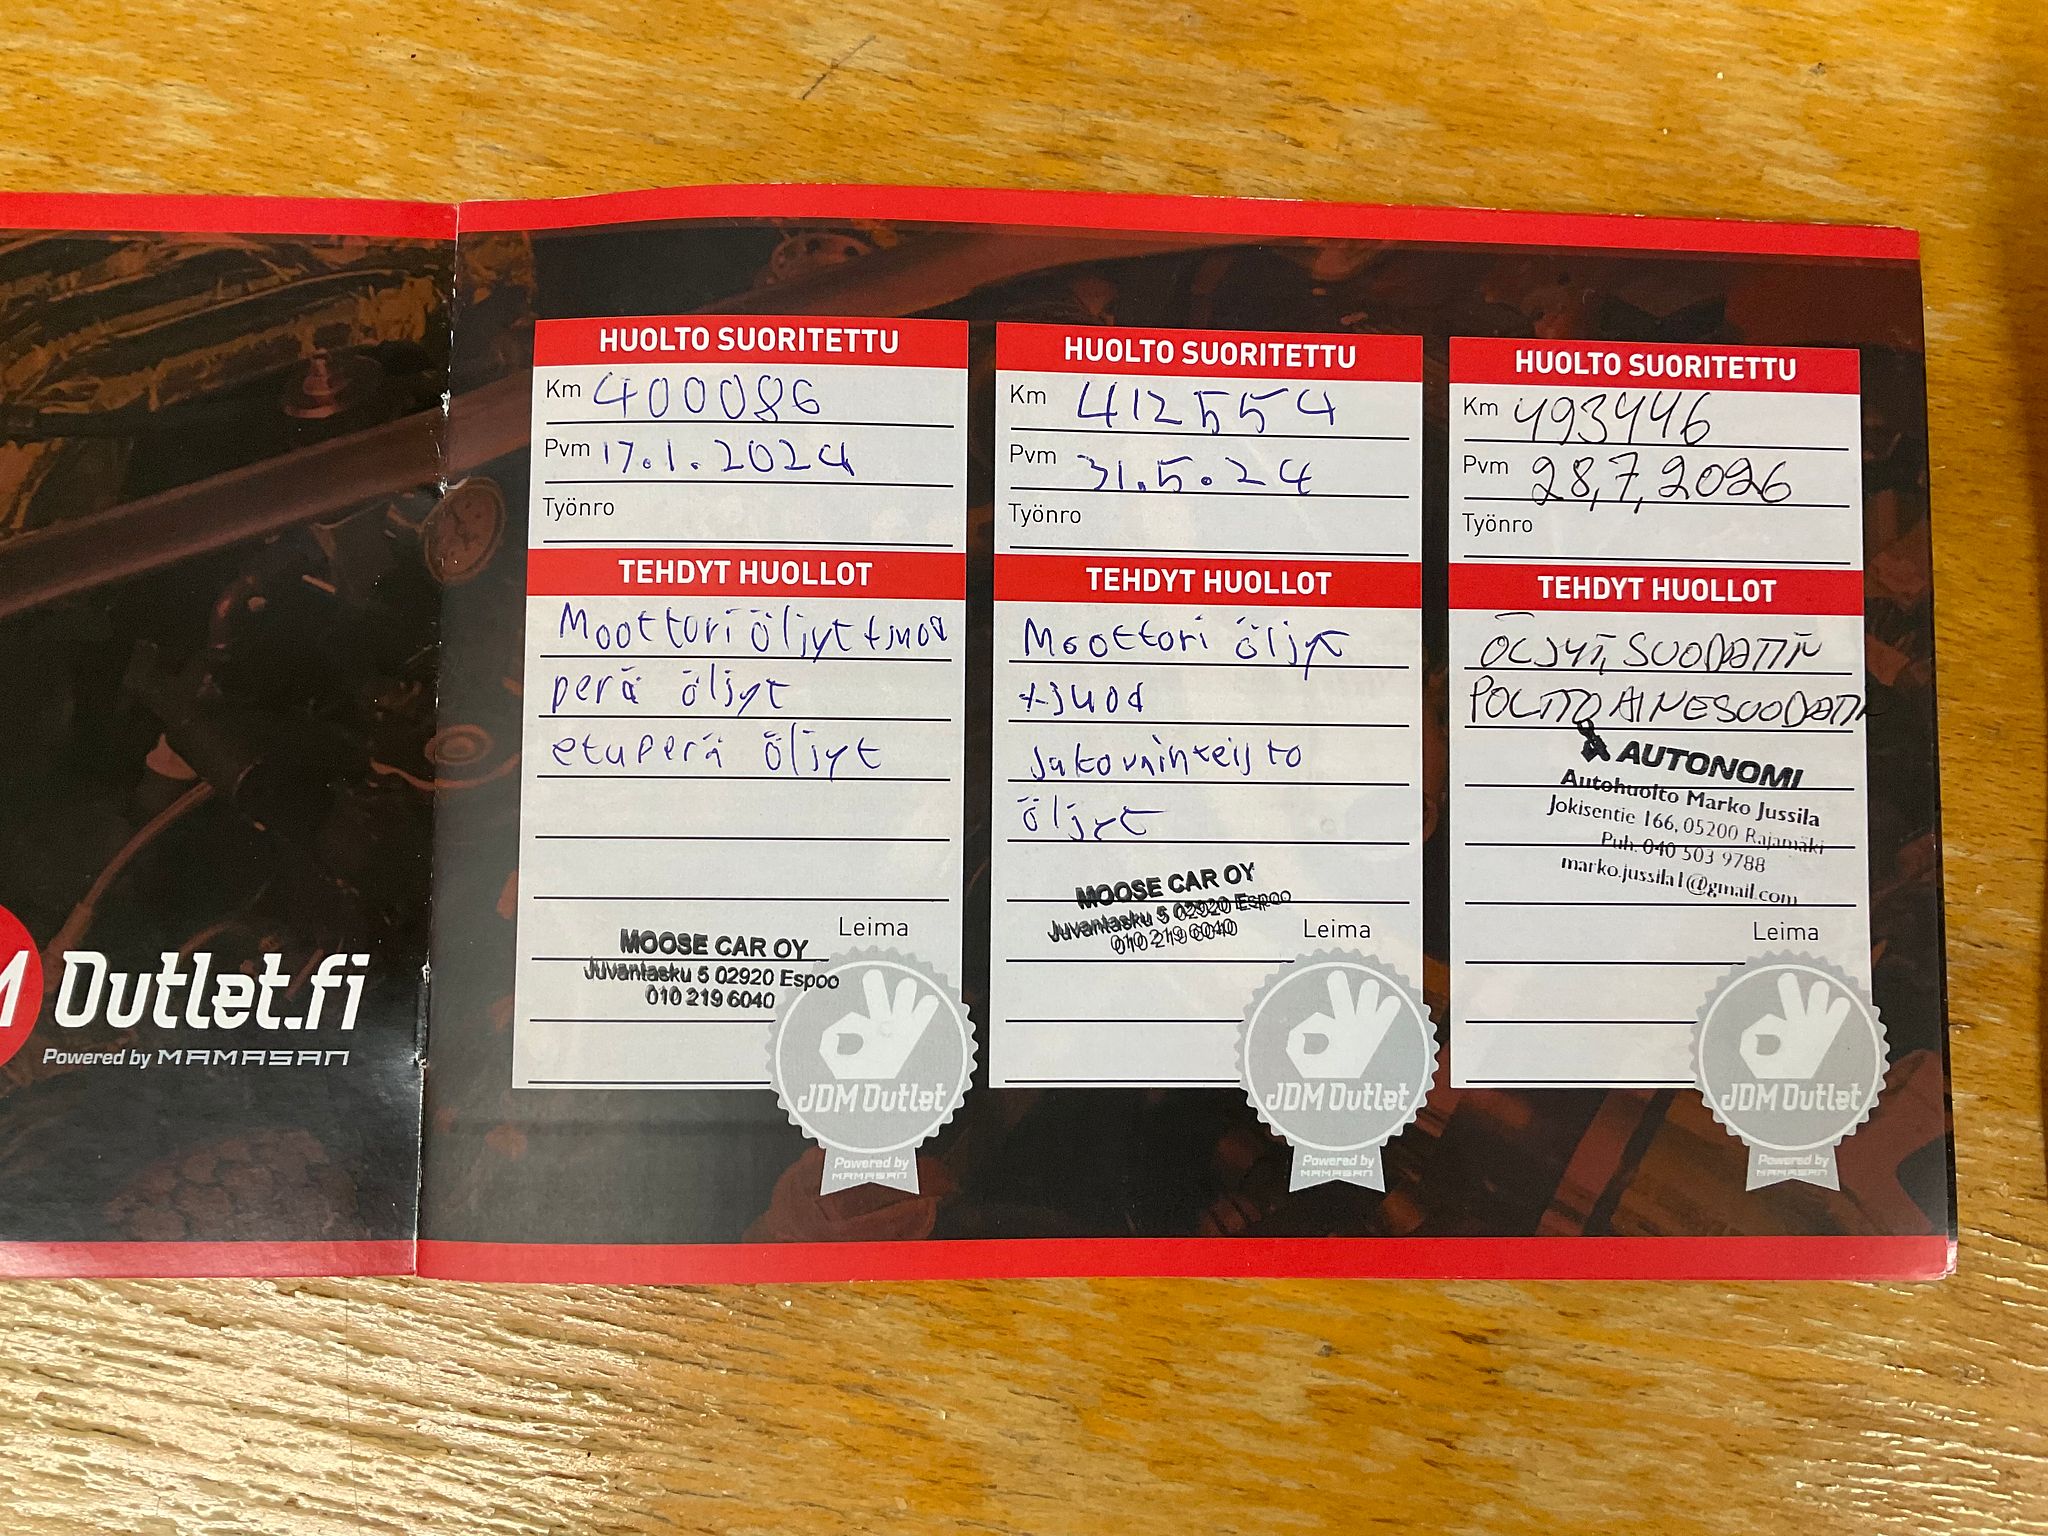 Outlet.fi
Powered by MAMASAN
HUOLTO SUORITETTU
Km 400086
Pvm 17.1.2024
Työnro
TEHDYT HUOLLOT
Moottori öljyt +suod
perä öljyt
etuperä öljyt
Leima
MOOSE CAR OY
Juvantasku 5 02920 Espoo
010 219 6040
JDM Outlet
Powered by
MAMASAN
HUOLTO SUORITETTU
Km 412554
Pvm 31.5.24
Työnro
TEHDYT HUOLLOT
Moottori öljyt
+suod
Jakovainteisto
öljyt
MOOSE CAR OY
Juvantasku 5 02920 Espoo
010 219 6040
Leima
JDM Outlet
Powered by
MAMASAN
HUOLTO SUORITETTU
Km 493446
Pvm 28,7,2026
Työnro
TEHDYT HUOLLOT
ÖLJYT, SUODATIN
POLTTOAINESUODATIN
AUTONOMI
Autohuolto Marko Jussila
Jokisentie 166, 05200 Rajamäki
Puh. 040 503 9788
marko.jussila1@gmail.com
Leima
JDM Outlet
Powered by
MAMASAN